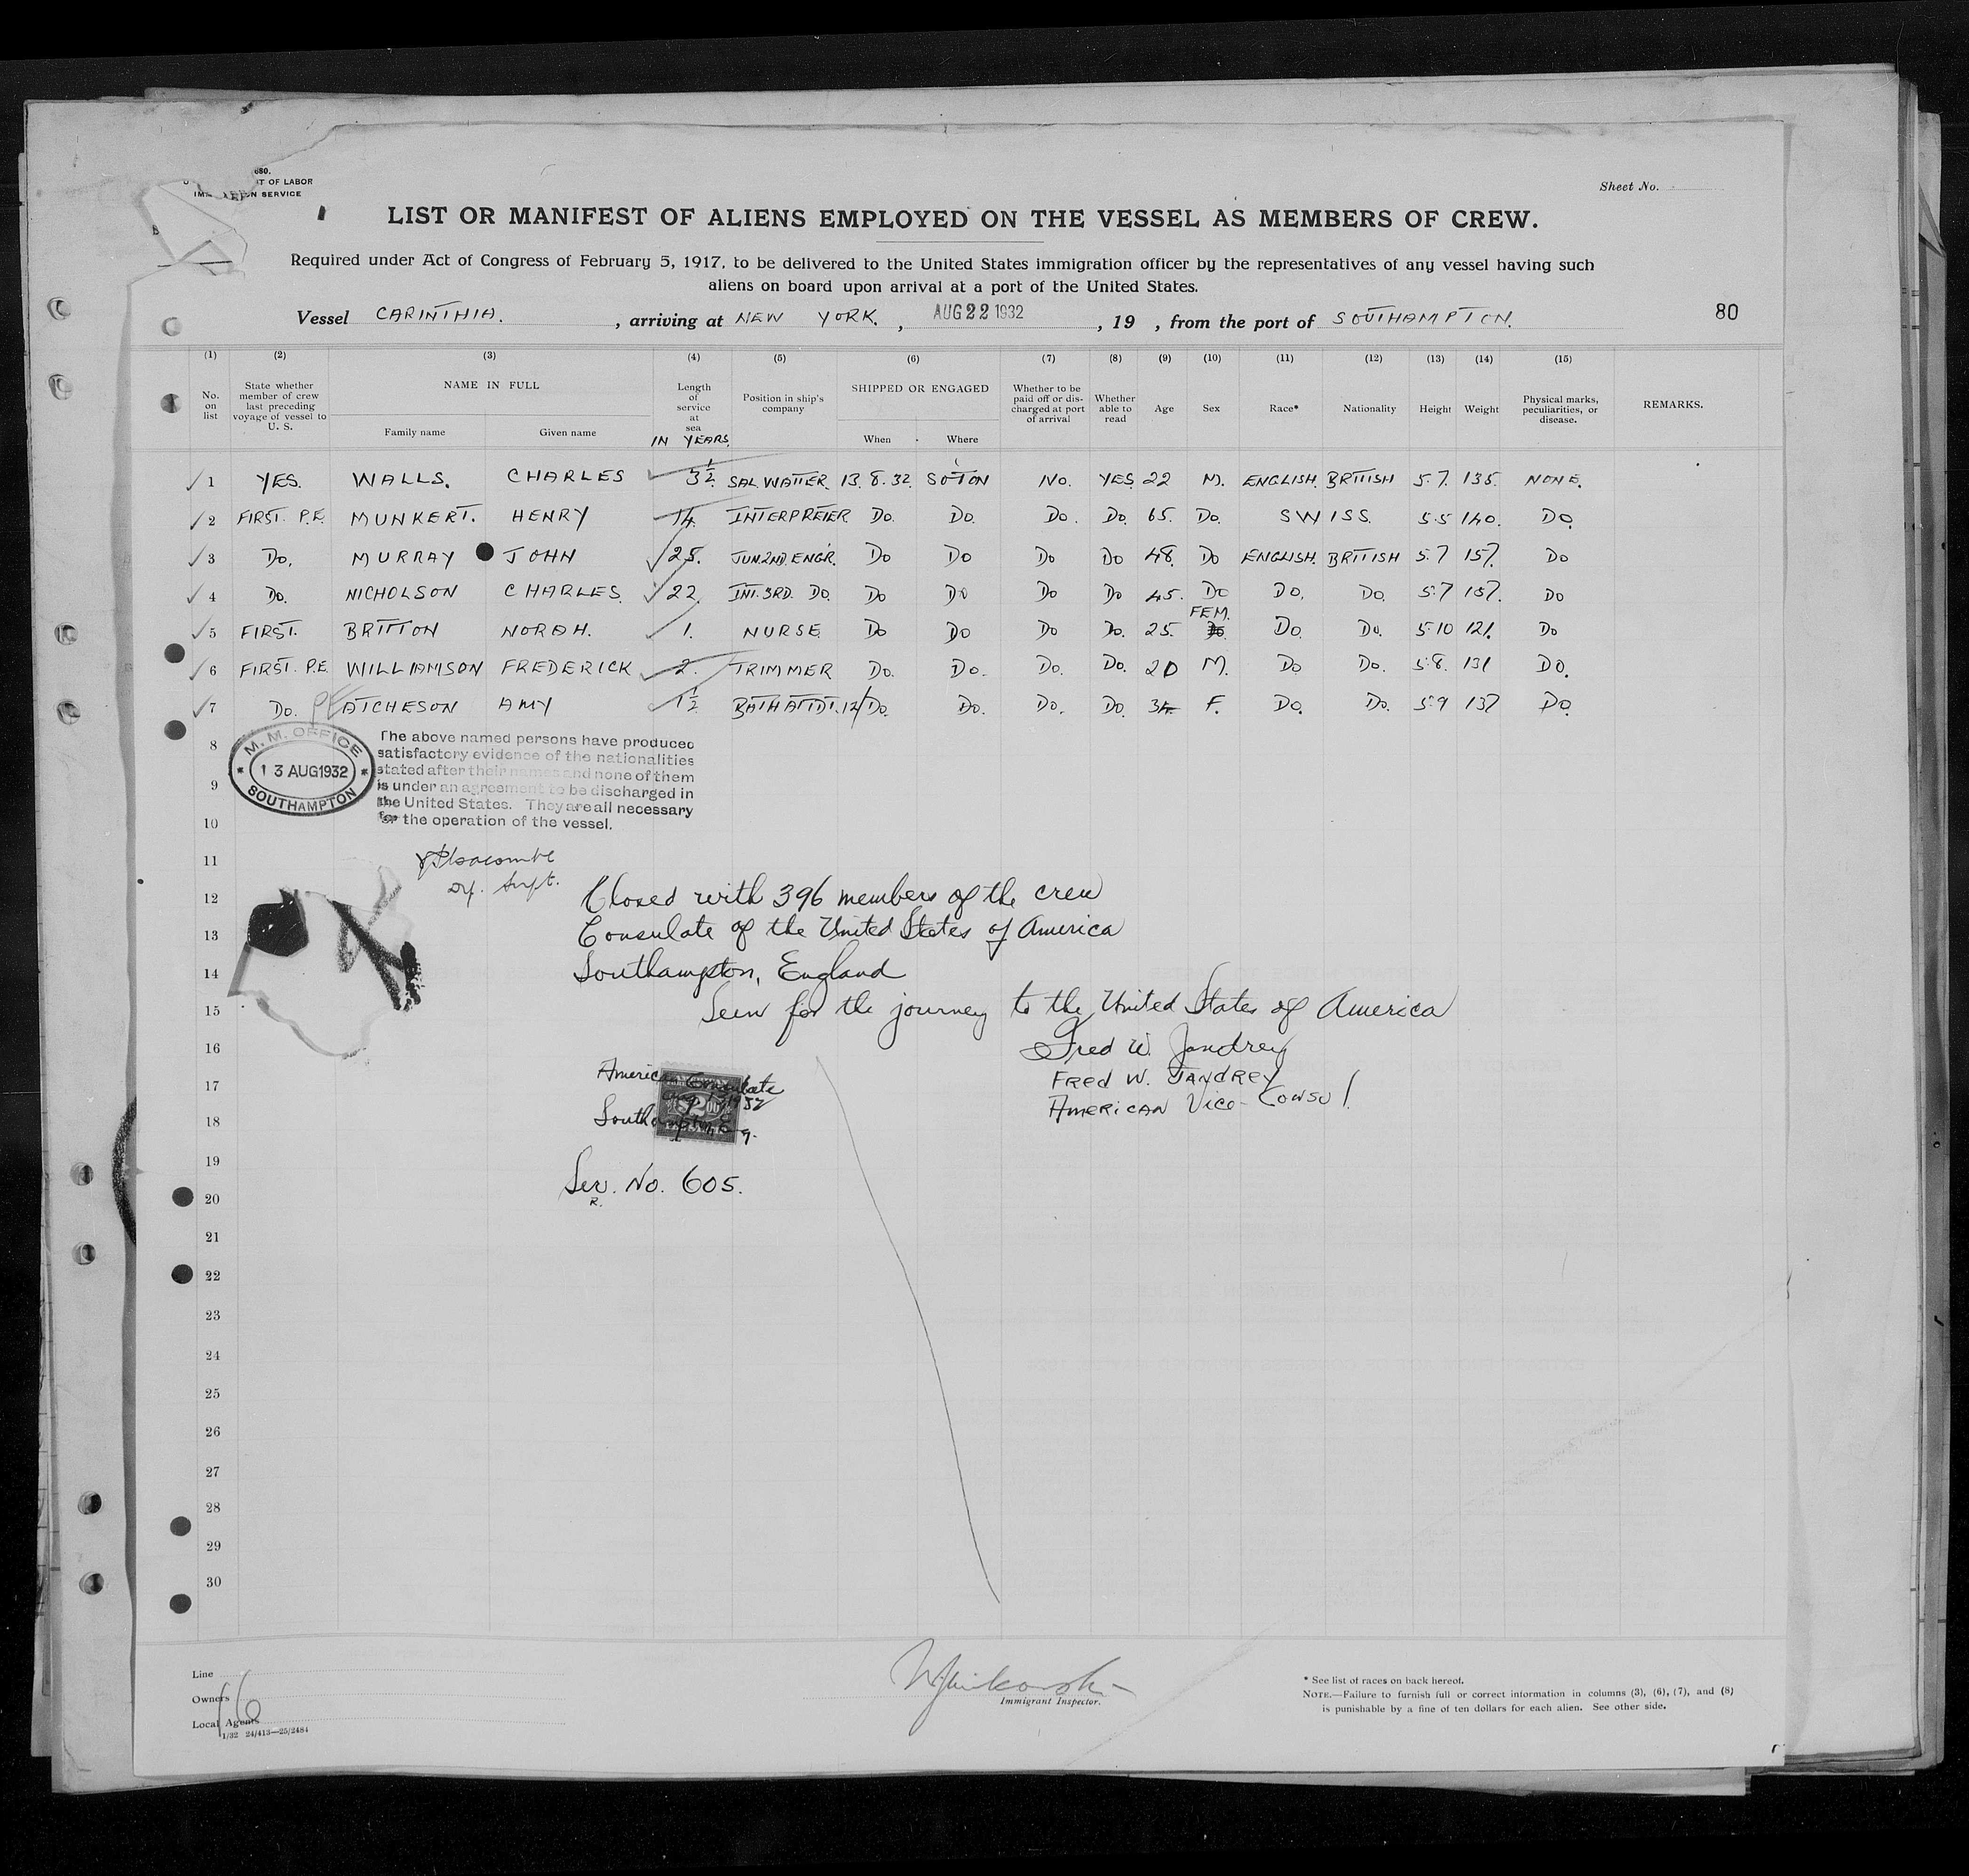 680.
T OF LABOR
N SERVICE
Sheet No.
LIST OR MANIFEST OF ALIENS EMPLOYED ON THE VESSEL AS MEMBERS OF CREW.
Required under Act of Congress of February 5, 1917, to be delivered to the United States immigration officer by the representatives of any vessel having such
aliens on board upon arrival at a port of the United States.
Vessel CARINTHIA. , arriving at NEW YORK. , AUG 22 1932 , 19 , from the port of SOUTHAMPTON. 80
(1) (2) (3) (4) (5) (6) (7) (8) (9) (10) (11) (12) (13) (14) (15)
No. on list State whether member of crew last preceding voyage of vessel to U. S. NAME IN FULL Family name Given name Length of service at sea IN YEARS. Position in ship's company SHIPPED OR ENGAGED When Where Whether to be paid off or discharged at port of arrival Whether able to read Age Sex Race* Nationality Height Weight Physical marks, peculiarities, or disease. REMARKS.
1 YES. WALLS. CHARLES 3½ SAL. WAITER. 13.8.32. SO'TON NO. YES 22 M. ENGLISH. BRITISH 5.7. 135. NONE.
2 FIRST. P.E. MUNKERT. HENRY 14. INTERPRETER Do. Do. Do. Do. 65. Do. SWISS. 5.5 140. Do.
3 Do. MURRAY JOHN 25. JUN.2ND.ENGR. Do Do Do Do 48. Do ENGLISH. BRITISH 5.7 157. Do
4 Do. NICHOLSON CHARLES. 22. INT.3RD. Do. Do Do Do Do 45. Do Do. Do. 5.7 157. Do
5 FIRST. BRITTON NORAH. 1. NURSE Do Do Do Do. 25. FEM. Do. Do. 5.10 121. Do
6 FIRST. P.E. WILLIAMSON FREDERICK 2. TRIMMER Do. Do. Do. Do. 20 M. Do Do. 5.8. 131 Do.
7 Do. PE ATCHESON AMY 1½ BATH ATTDT. 12/Do. Do. Do. Do. 34 F. Do. Do. 5.9 137 Do.
8
9
10
M. M. OFFICE
13 AUG 1932
SOUTHAMPTON
The above named persons have produced
satisfactory evidence of the nationalities
stated after their names and none of them
is under an agreement to be discharged in
the United States. They are all necessary
for the operation of the vessel.
11
Dy. Supt.
12 Closed with 396 members of the crew
13 Consulate of the United States of America
14 Southampton, England
15 Seen for the journey to the United States of America
16 Fred W. Jandrey
17 FRED W. JANDREY
AMERICAN VICE-CONSUL
American Consulate
$2.00
18 Southampton, Eng.
19
Ser. No. 605.
20
21
22
23
24
25
26
27
28
29
30
Line
Owners
Local Agents
16
1/32 24/413—25/2484
Immigrant Inspector.
* See list of races on back hereof.
NOTE.—Failure to furnish full or correct information in columns (3), (6), (7), and (8)
is punishable by a fine of ten dollars for each alien. See other side.